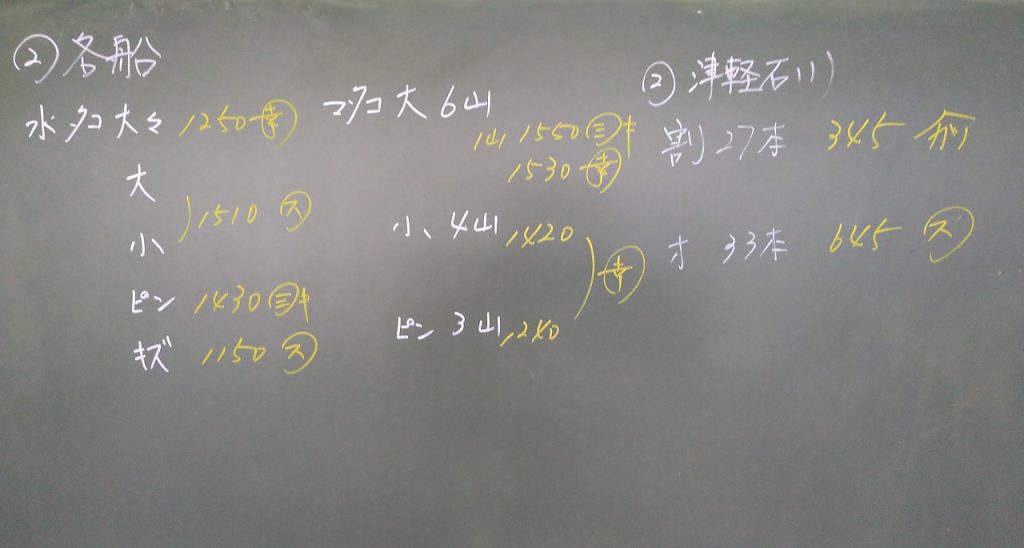 ②各船
水タコ大々 1250 幸
大
小
1510 ス
ピン 1430 三キ
キズ 1150 ス
マダコ 大 6山
1山 1550 三キ
1530 幸
小 4山 1420
ピン 3山 1240
幸
②津軽石川
割 27本 345
オ 33本 645 ス